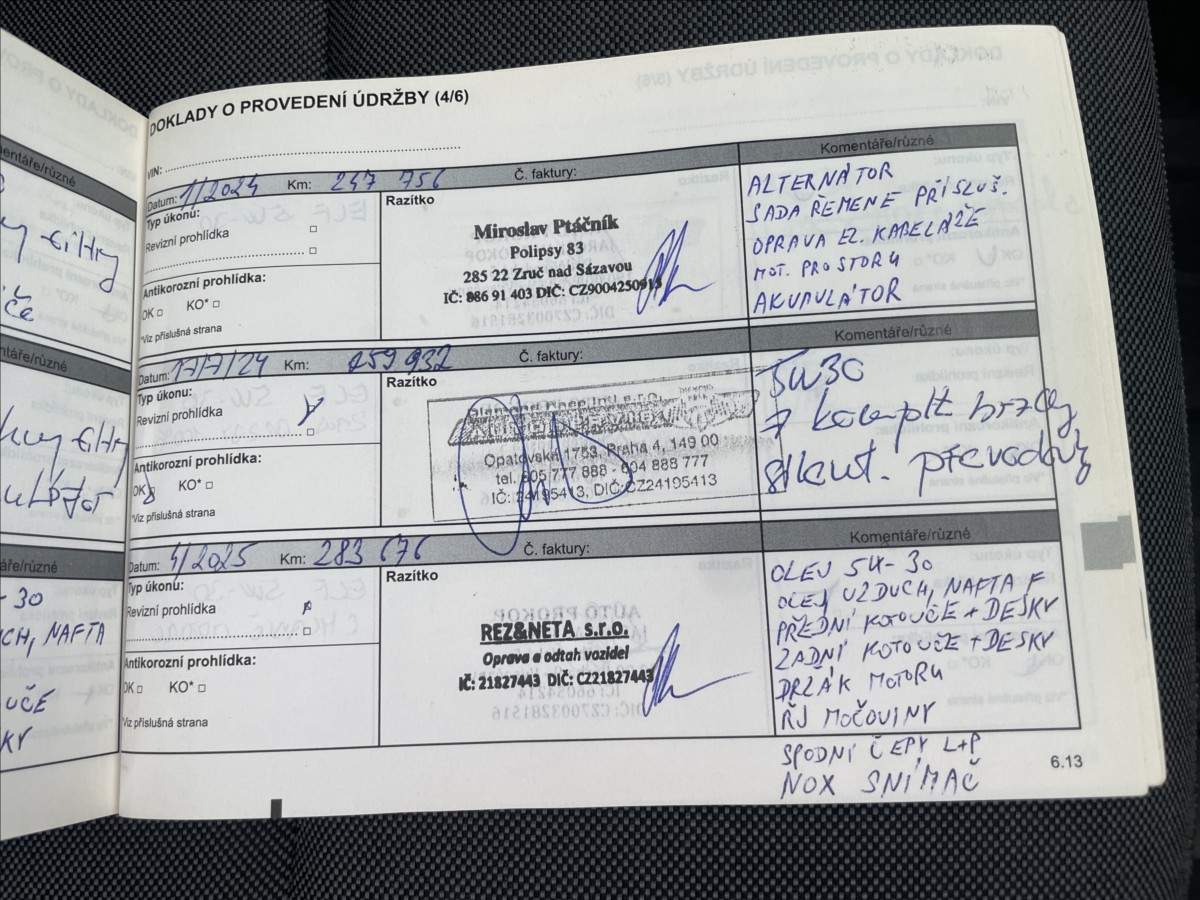 DOKLADY O PROVEDENÍ ÚDRŽBY (4/6)
VIN:
Datum: 1/2024 Km: 247 756 Č. faktury:
Komentáře/různé
Typ úkonu:
Revizní prohlídka
Antikorozní prohlídka:
OK KO*
*Viz příslušná strana
Razítko
Miroslav Ptáčník
Polipsy 83
285 22 Zruč nad Sázavou
IČ: 886 91 403 DIČ: CZ9004250913
ALTERNÁTOR
SADA ŘEMENE PŘÍSLUŠ.
OPRAVA EL. KABELÁŽE
MOT. PROSTORU
AKUMULÁTOR
Datum: 17/7/24 Km: 259 932 Č. faktury:
Komentáře/různé
Typ úkonu:
Revizní prohlídka
Antikorozní prohlídka:
OK KO*
*Viz příslušná strana
Razítko
Opatovská 1763, Praha 4, 149 00
tel. 605 777 888 - 604 888 777
IČ: 24195413, DIČ:CZ24195413
5W30
komplt brzdy
převodovky
Datum: 4/2025 Km: 283 676 Č. faktury:
Komentáře/různé
Typ úkonu:
Revizní prohlídka
Antikorozní prohlídka:
OK KO*
*Viz příslušná strana
Razítko
REZ&NETA s.r.o.
Oprava a odtah vozidel
IČ: 21827443 DIČ: CZ21827443
OLEJ 5W-30
OLEJ VZDUCH, NAFTA F
PŘEDNÍ KOTOUČE + DESKY
ZADNÍ KOTOUČE + DESKY
DRŽÁK MOTORU
ŘJ MOČOVINY
SPODNÍ ČEPY L+P
NOX SNÍMAČ
6.13